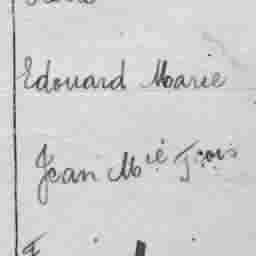 Edouard Marie
Jean Mie Fçois